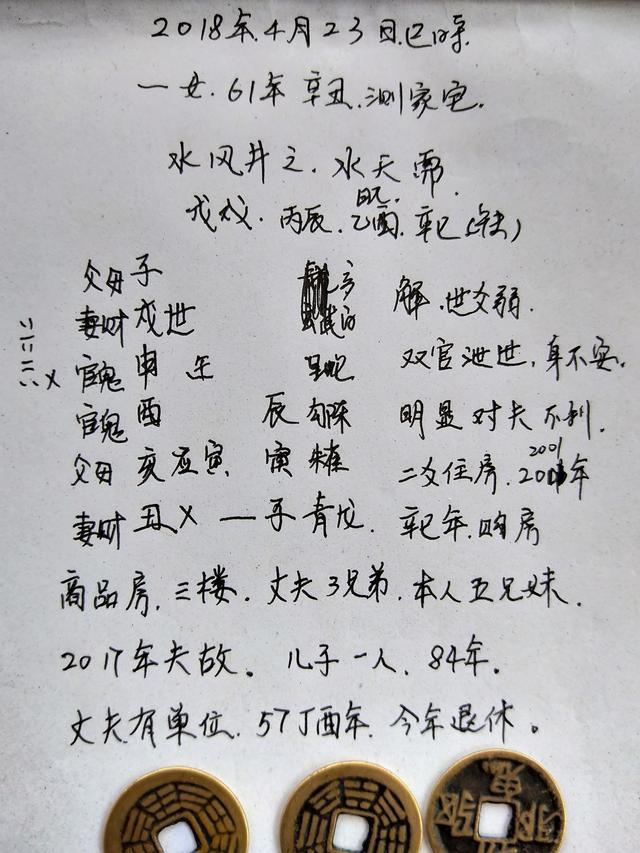 2018年.4月23日.巳时.
一女.61年辛丑.测家宅.
水风井之.水天需.
日元.
戊戌.丙辰.乙酉.辛巳(年未)
父母子
妻财戌世 解.世爻弱.
官鬼申 午 双官泄世.身不安.
官鬼酉 辰 勾陈 明显对夫不利.
父母亥应寅 寅 朱雀 二爻住房.2001年
妻财丑X 一子 青龙.辛巳年.购房
商品房.三楼.丈夫3兄弟.本人五兄妹.
2017年夫故。儿子一人.84年.
丈夫有单位.57丁酉年.今年退休。